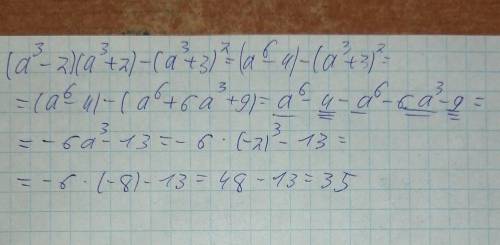 (a³-2)(a³+2)-(a³+3)²=(a⁶-4)-(a³+3)²=
=(a⁶-4)-(a⁶+6a³+9)=a⁶-4-a⁶-6a³-9=
=-6a³-13=-6·(-2)³-13=
=-6·(-8)-13=48-13=35